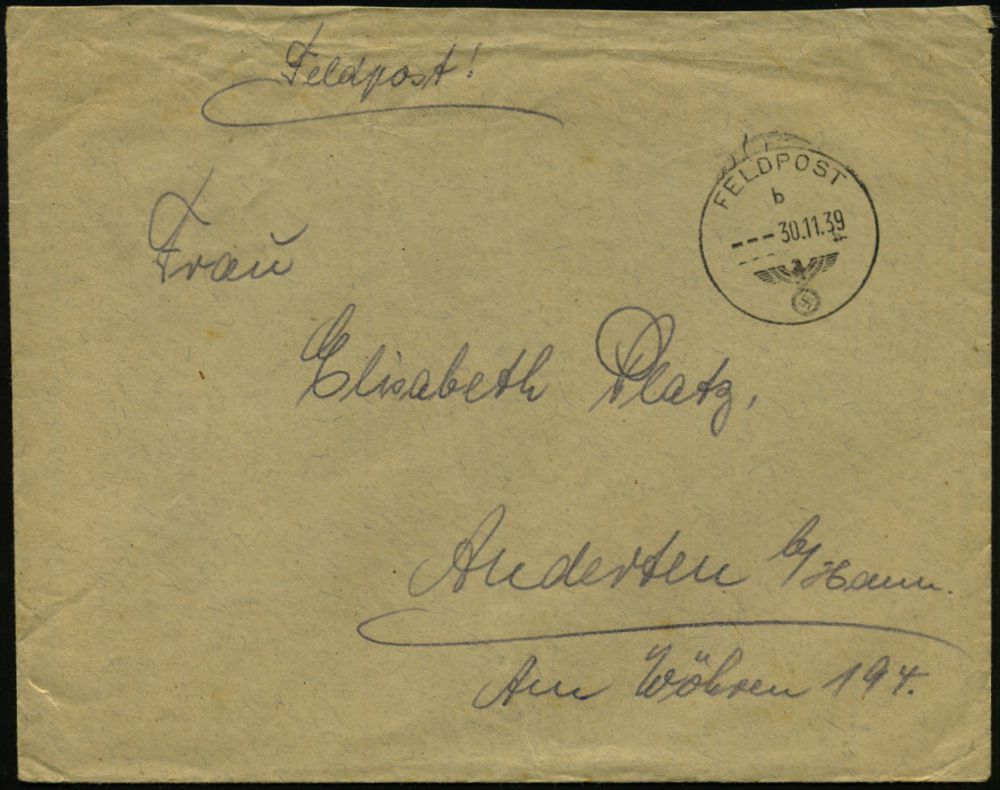 Feldpost!
FELDPOST
b
--- 30.11.39
---
Frau
Elisabeth Platz,
Anderten b/Hann.
Am Wöhren 194.